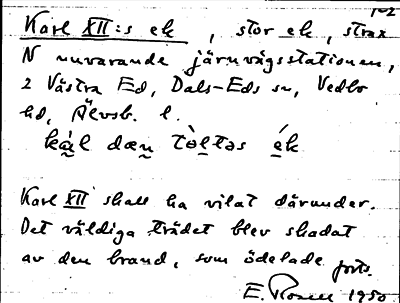 1-2
Karl XII:s ek, stor ek, strax
N nuvarande järnvägsstationen,
2 Västra Ed, Dals-Eds sn, Vedbo
hd, Älvsb. l.
ká̱l dæṉ tò̱ltəs é̱k
Karl XII skall ha vilat därunder.
Det väldiga trädet blev skadat
av den brand, som ödelade forts.
E. Rosell 1950